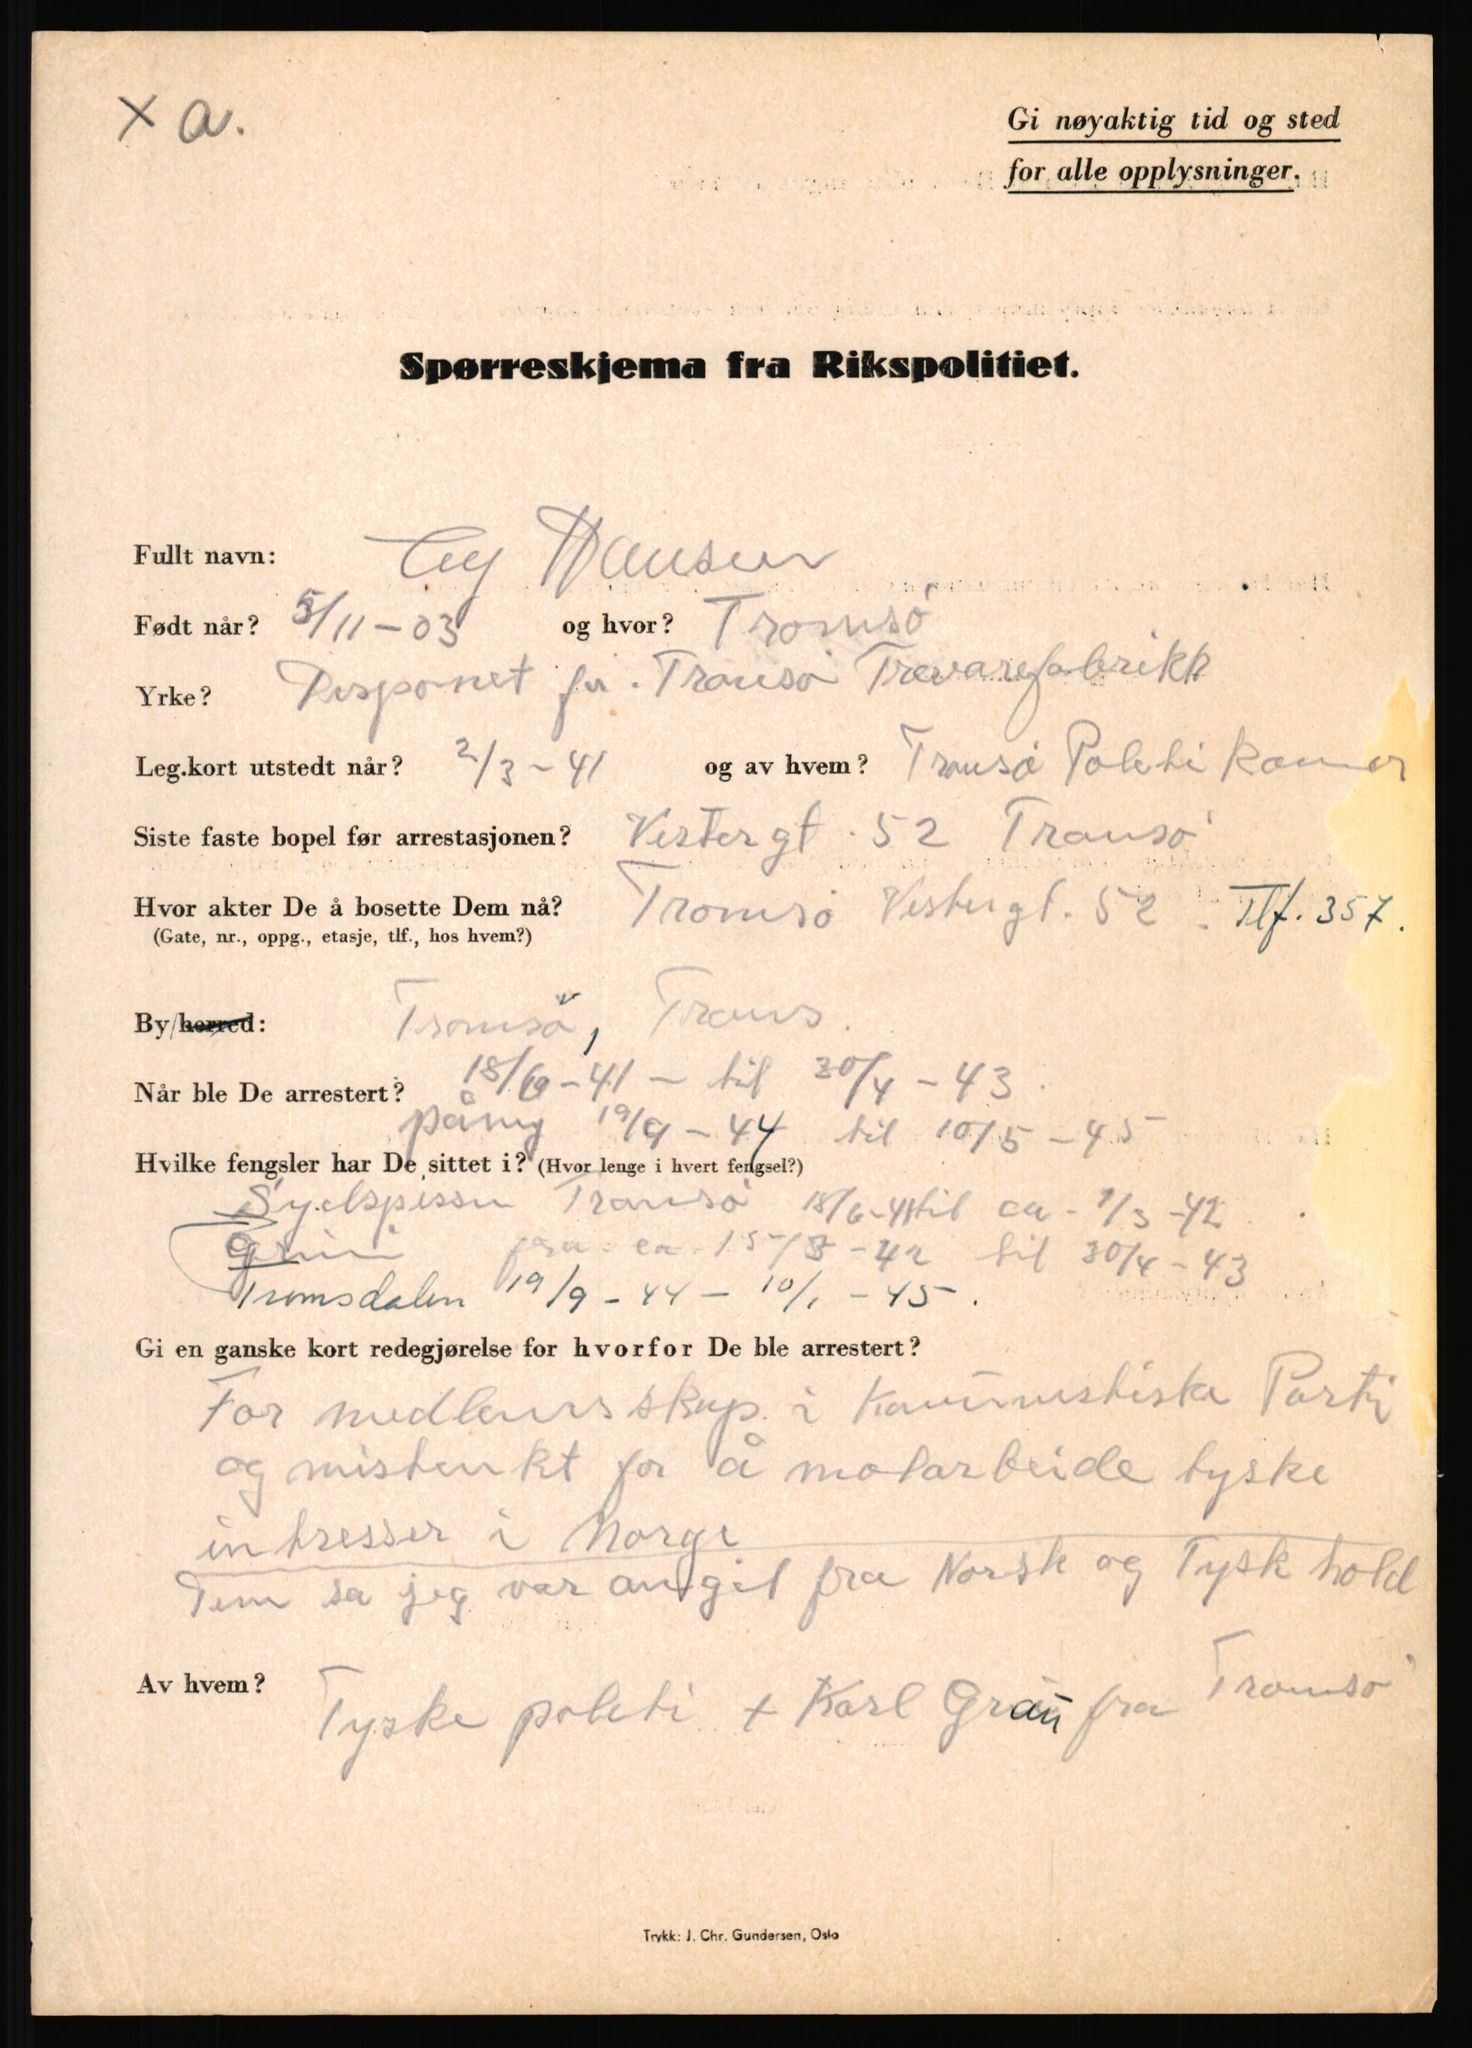 x a.
Gi nøyaktig tid og sted
for alle opplysninger.
Spørreskjema fra Rikspolitiet.
Fullt navn: Hansen
Født når? 5/11 - 03 og hvor? Tromsø
Yrke? Disponet for Tromsø Trevarefabrikk
Leg.kort utstedt når? 2/3 - 41 og av hvem? Tromsø Politikamer
Siste faste bopel før arrestasjonen? Vestergt. 52 Tromsø
Hvor akter De å bosette Dem nå? Tromsø Vestergt. 52. Tlf. 357.
(Gate, nr., oppg., etasje, tlf., hos hvem?)
By/herred: Tromsø, Troms.
Når ble De arrestert? 18/6 - 41 - til 30/4 - 43.
påny 19/9 - 44 til 10/5 - 45
Hvilke fengsler har De sittet i? (Hvor lenge i hvert fengsel?)
Sydspissen Tromsø 18/6-41 til ca - 1/3 - 42
Grini fra ca 15/3 - 42 til 30/4 - 43
Tromsdalen 19/9 - 44 - 10/1 - 45.
Gi en ganske kort redegjørelse for hvorfor De ble arrestert?
For medlemsskap i Kommunistiske Parti
og mistenkt for å motarbeide tyske
intresser i Norge
Dem sa jeg var angit fra Norsk og Tysk hold
Av hvem? Tyske politi + Karl Grau fra Tromsø
Trykk: J. Chr. Gundersen, Oslo